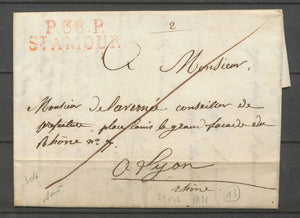 2
P.38.P.
ST AMOUR
A Monsieur,
Monsieur delavernée conseiller de
préfecture, place Louis le grand facade du
Rhône no 7.
A Lyon
Rhône.
304
1821
13